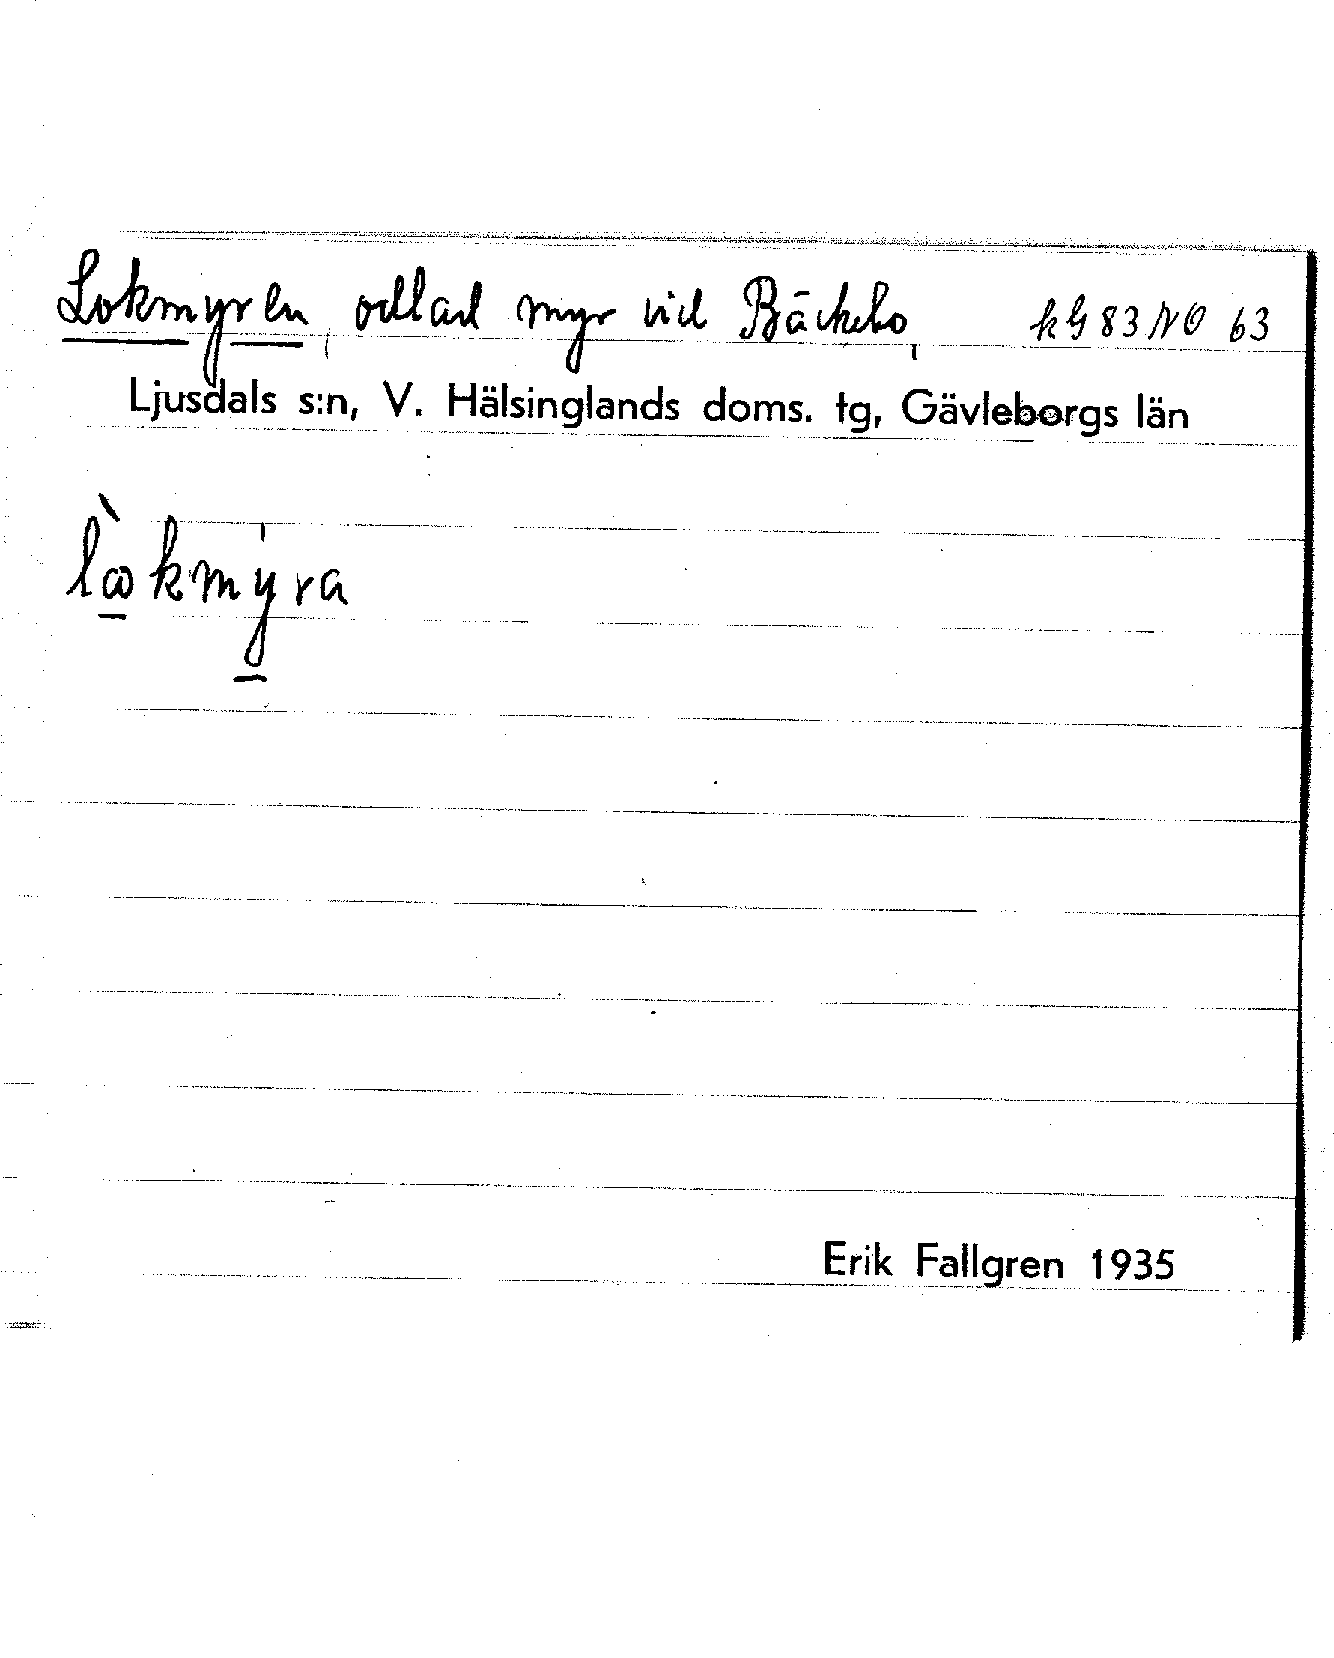 Lokmyren, odlad myr vid Bäckebo, kG 83 NO 63
Ljusdals s:n, V. Hälsinglands doms. tg, Gävleborgs län
lò̱kmy̱ra
Erik Fallgren 1935